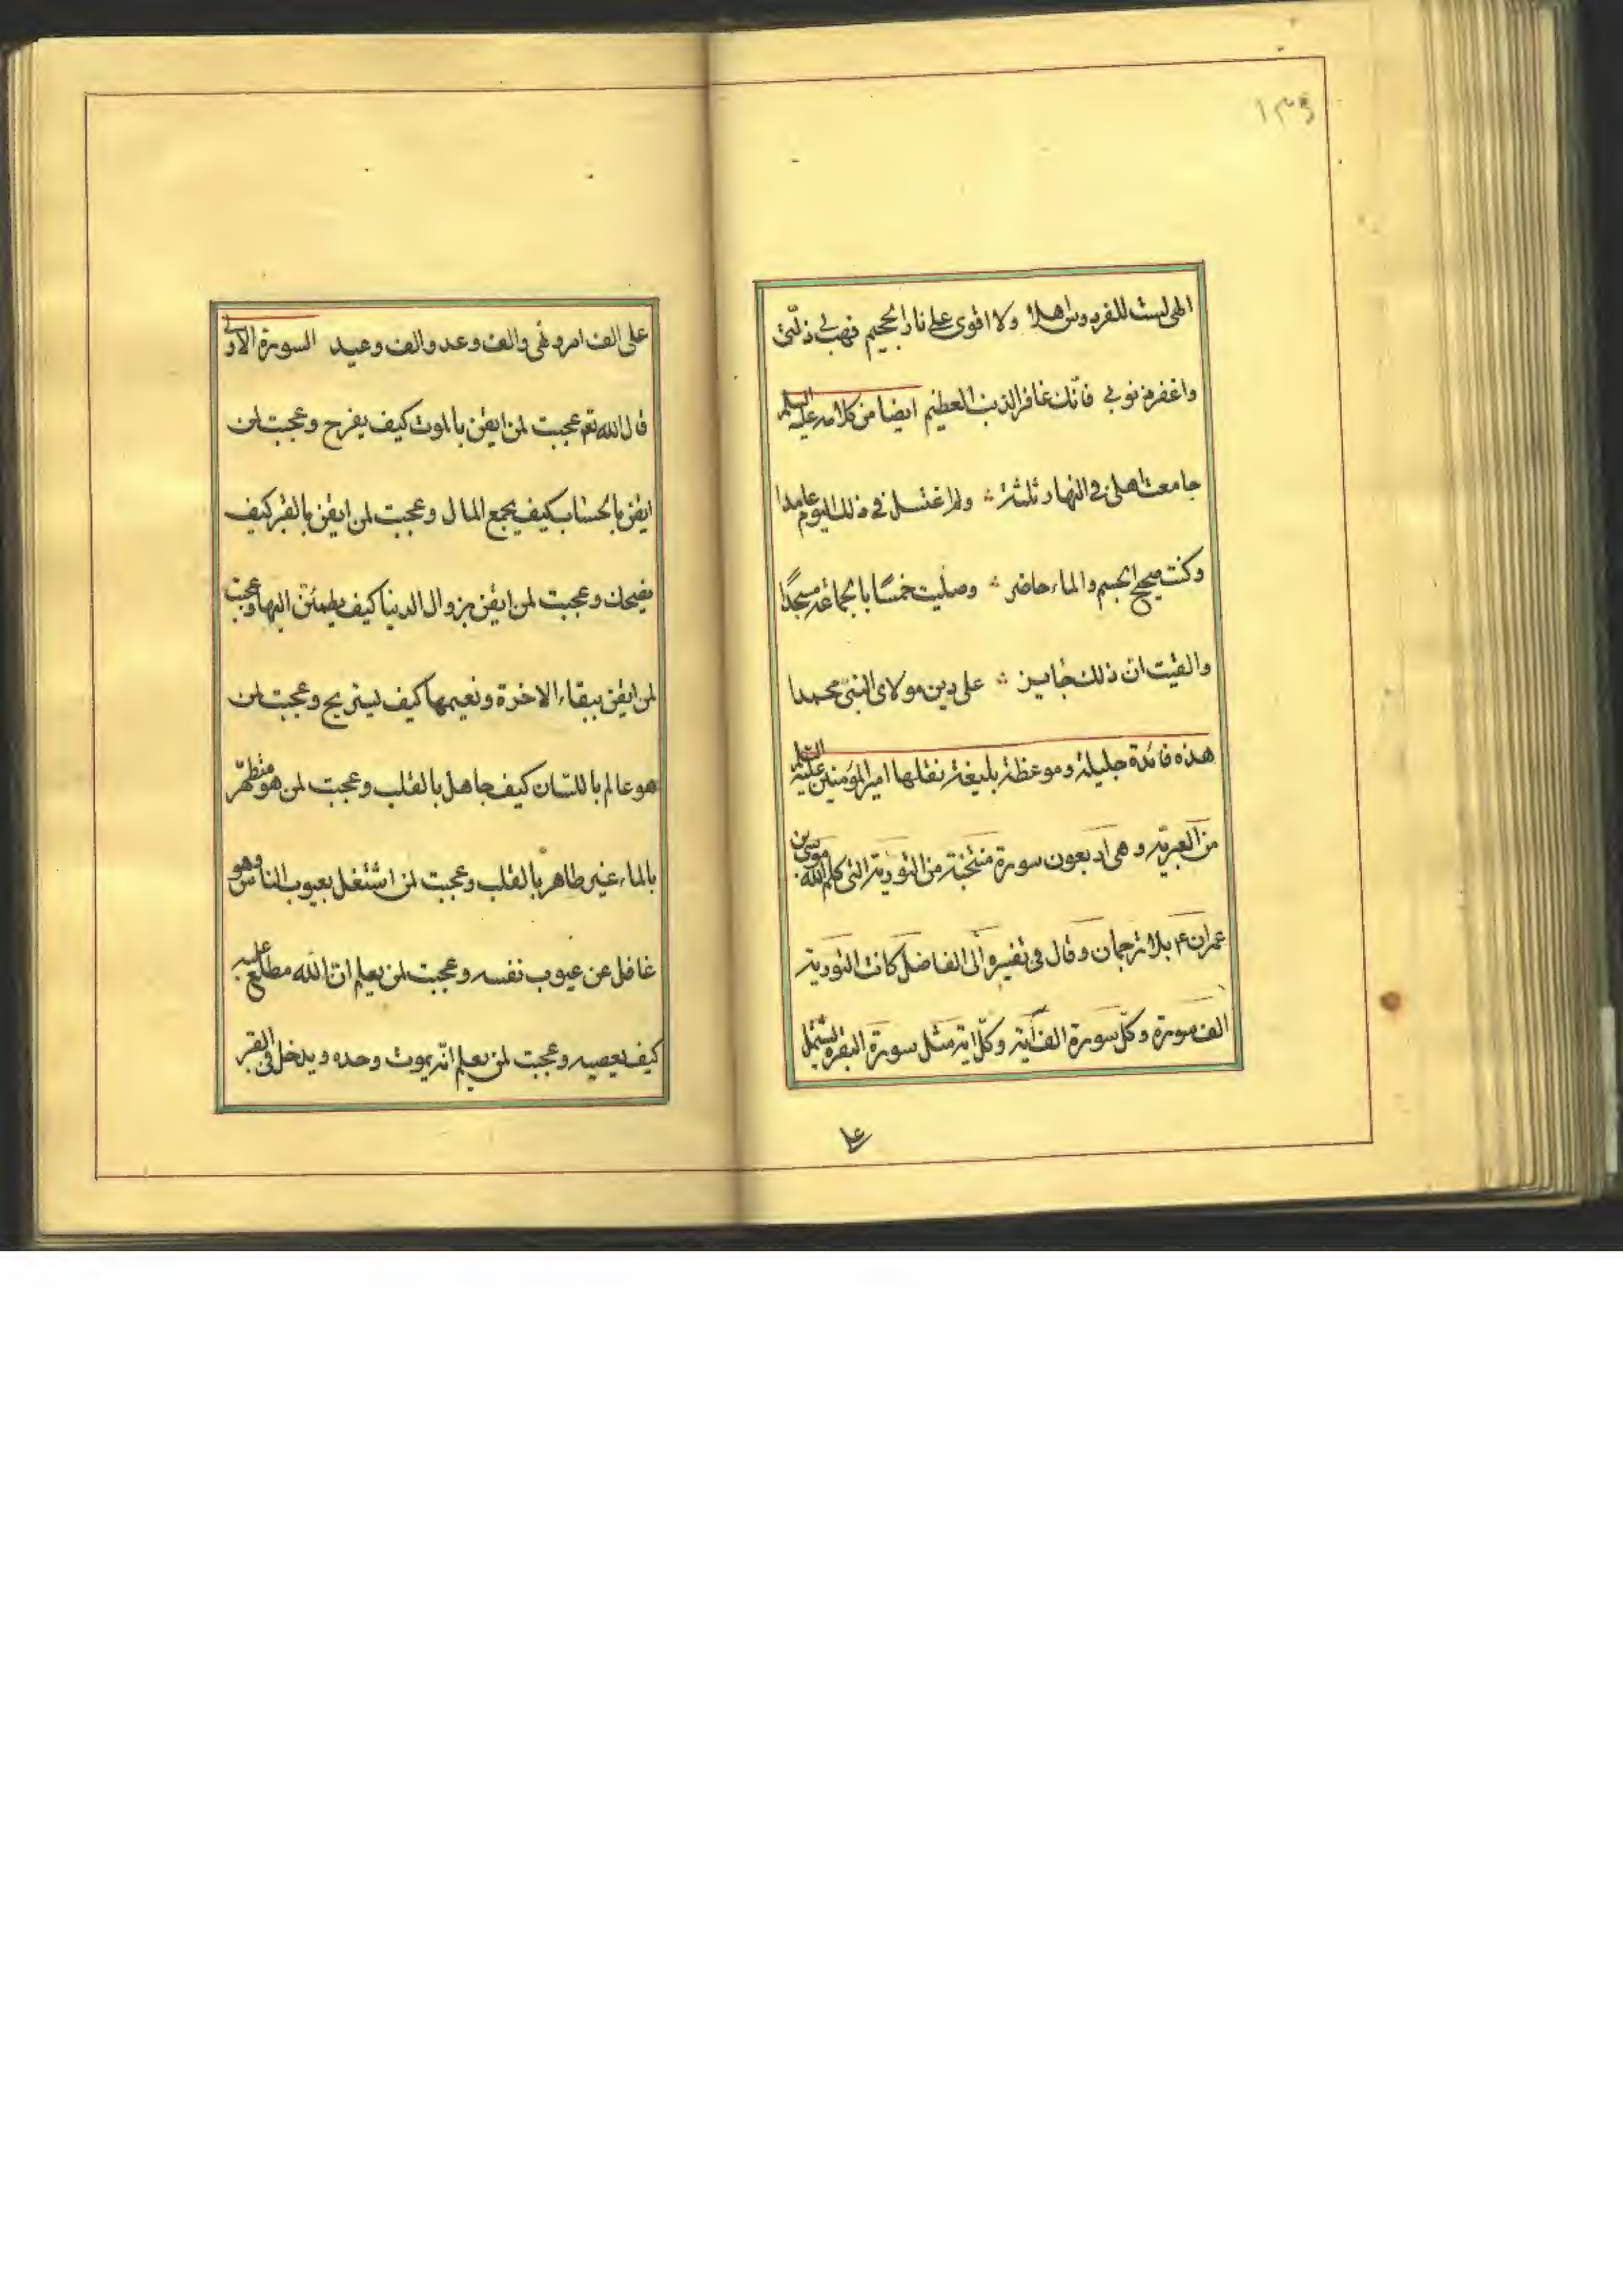 ١٣٥
الهی لست للفردوس اهلا ولا اقوی علی نار الجحیم فهب لی ذلّتی
واغفر ذنوبی فانّک غافر الذنب العظیم ایضا من کلامه علیه السلم
جامعت اهلی فی النهار ثلثة ولم اغتسل فی ذلک الیوم عامدا
وکنت صحیح الجسم والماء حاضر وصلیت خمسًا بالجماعة مسجدًا
والفیت ان ذلک جایز علی دین مولای النبیّ محمدا
هذه فائدة جلیلة وموعظة بلیغة نقلها امیر المؤمنین علیه السلم
من العبریة وهی اربعون سورة منتخبة من التوریة التی کلم الله موسی بن
عمران ۴ بلا ترجمان وقال فی تفسیره الی الفاضل کانت التوریة
الف سورة وکلّ سورة الف آیة وکلّ ایة مثل سورة البقرة یشتمل
علی
علی الف امر ونهی والف وعد والف وعید السورة الاولی
قال الله تعم عجبت لمن ایقن بالموت کیف یفرح وعجبت لمن
ایقن بالحساب کیف یجمع المال وعجبت لمن ایقن بالقبر کیف
یضحک وعجبت لمن ایقن بزوال الدنیا کیف یطمئنّ الیها وعجبت
لمن ایقن ببقاء الاخرة ونعیمها کیف یستریح وعجبت لمن
هو عالم باللسان کیف جاهل بالقلب وعجبت لمن هو متطهّر
بالماء غیر طاهر بالقلب وعجبت لمن اشتغل بعیوب الناس وهو
غافل عن عیوب نفسه وعجبت لمن یعلم انّ الله مطلع علیه
کیف یعصیه وعجبت لمن یعلم انّه یموت وحده ویدخل فی القبر